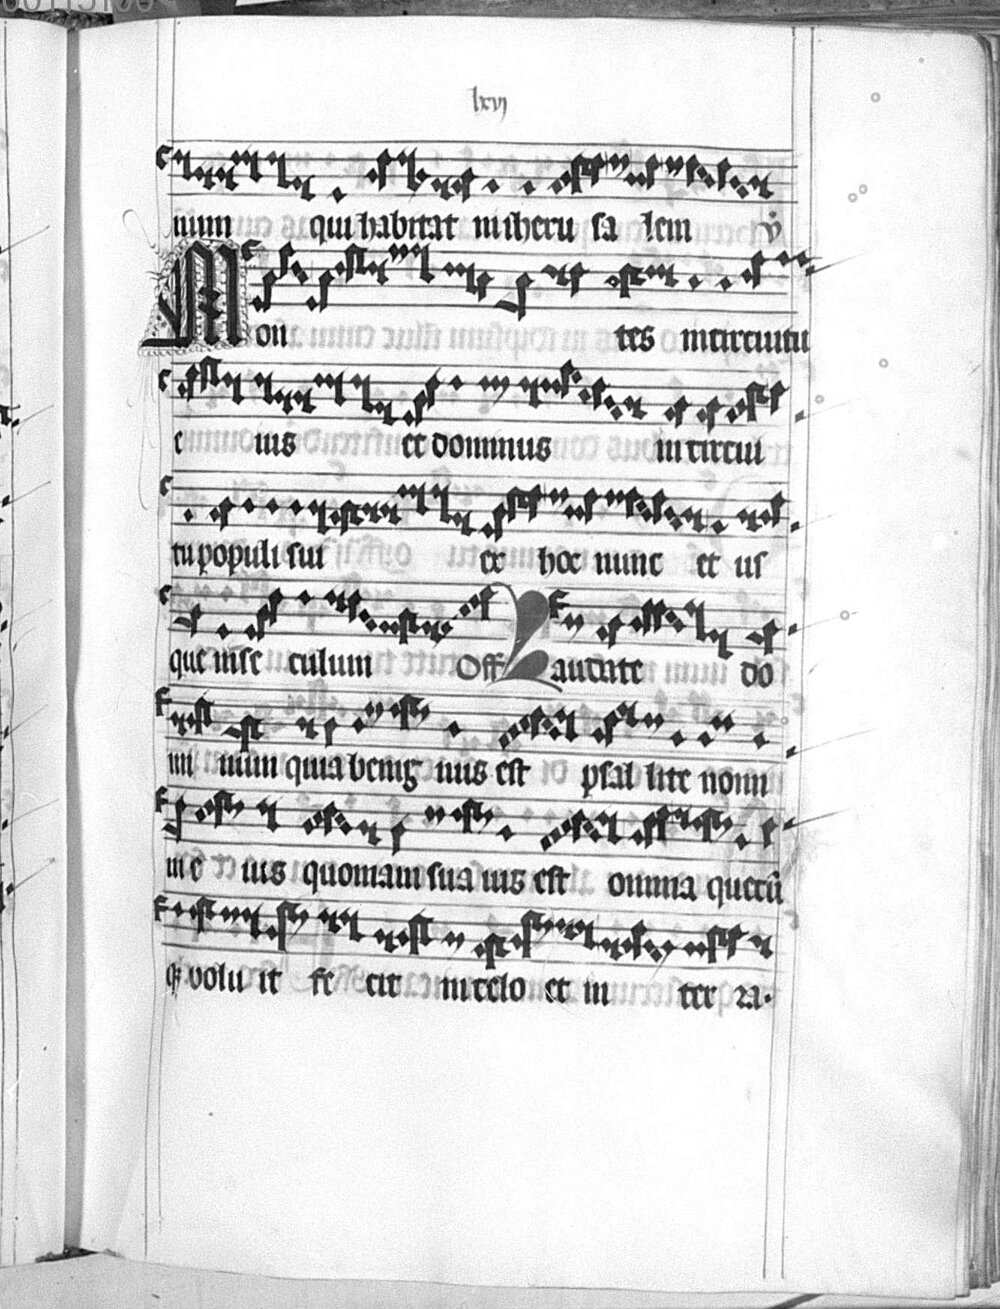 lxvj
num qui habitat in iheru sa lem v̄
Mon tes in circuitu
e ius et dominus in circui
tu populi sui ex hoc nunc et us
que in se culum Off Laudate do
mi num quia benig nus est psal lite nomi
ni e ius quoniam sua uis est omnia quecū
qꝫ volu it fe cit in celo et in ter ra.